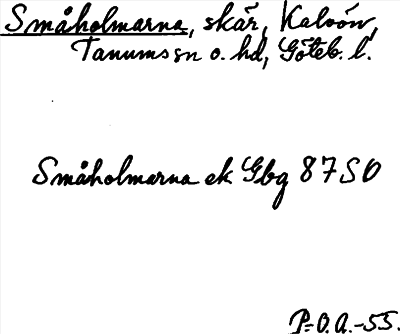 Småholmarna, skär, Kalvön,
Tanums sn o. hd, Göteb. l.
Småholmarna ek Gbg 87 SO
P-O.A.-55.